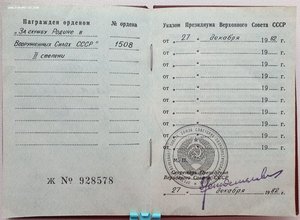 Награжден орденом
№ ордена
„За службу Родине в
Вооруженных Силах СССР"
1508
II степени
Ж № 928578
Указом Президиума Верховного Совета СССР
от „ 27 " декабря 1982 г.
от „ " 19 г.
от „ " 19 г.
от „ " 19 г.
от „ " 19 г.
от „ " 19 г.
от „ " 19 г.
от „ " 19 г.
М. П.
Секретарь Президиума
Верховного Совета СССР
„ 27 " декабря 19 г.